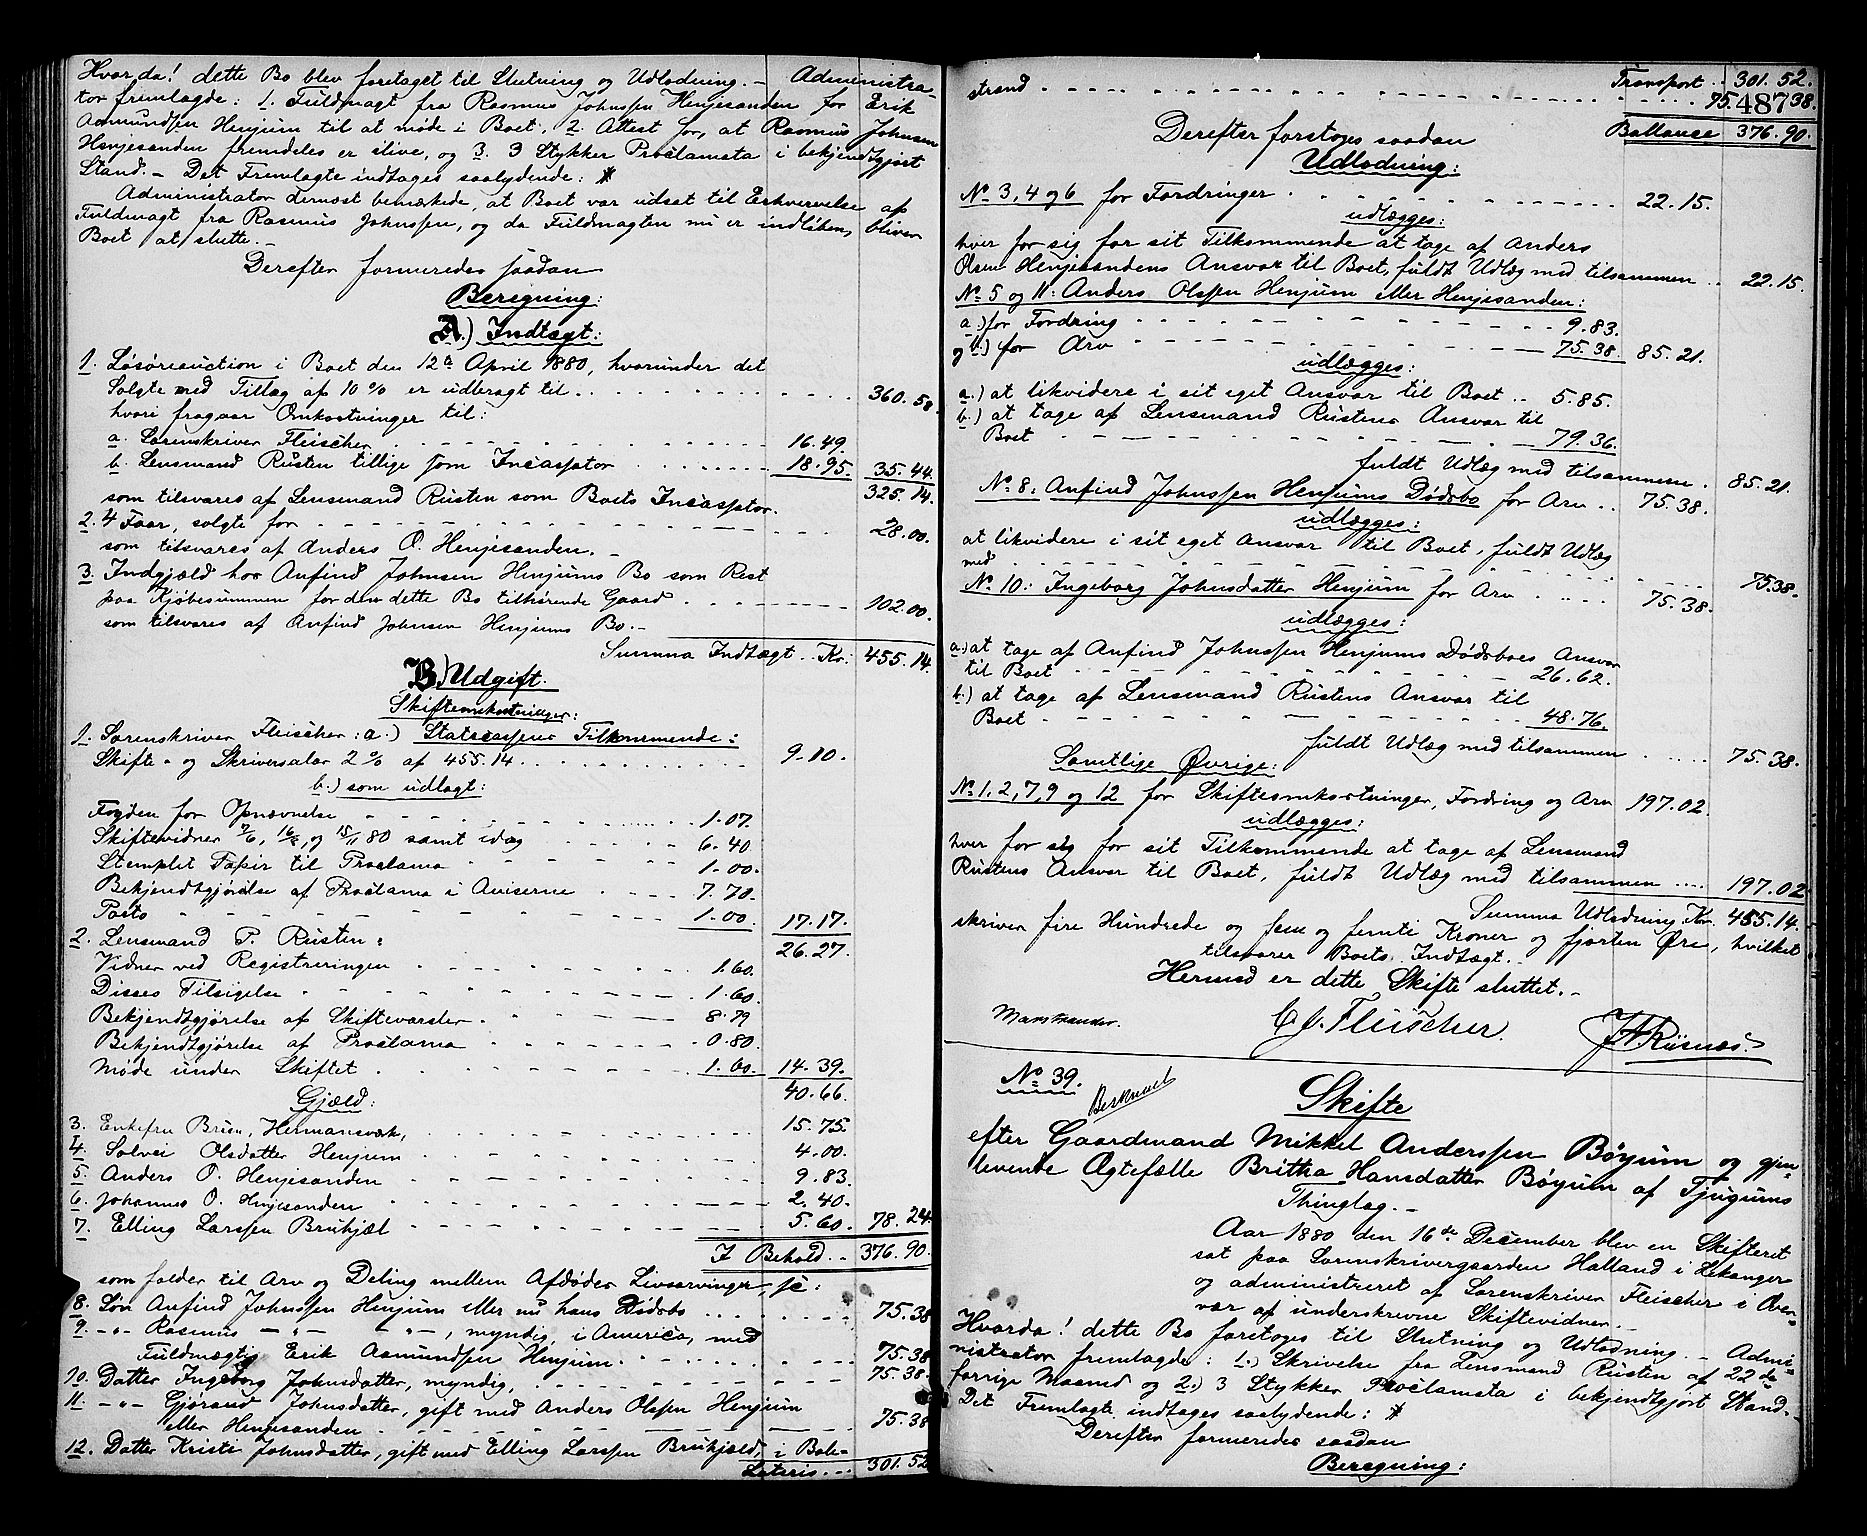 Hvorda! dette Bo blev foretaget til Slutning og Udlodning. – Administra-
tor fremlagde: 1. Fuldmagt fra Rasmus Johnssen Henjesanden for Erik
Aamundsen Henjum til at møde i Boet, 2. Attest for, at Rasmus Johnsen
Henjesanden fremdeles er ilive, og 3. 3 Stykker Proclamata i bekjendtgjort
Stand. – Det Fremlagte indtages saalydende:
Administrator dernæst bemærkede, at Boet var udsat til Erhvervelse af
Fuldmagt fra Rasmus Johnssen, og da Fuldmagten nu er indløben, bliver
Boet at slutte. –
Derefter formeredes saadan
Beregning:
A.) Indtægt:
1. Løsøreauction i Boet den 12te April 1880, hvorunder det
Solgte med Tillæg af 10 % er udbragt til . . 360.58.
hvori fragaar Omkostninger til:
a. Sorenskriver Fleischer 16.49.
b. Lensmand Rusten tillige som Incassator 18.95. 35.44.
som tilsvares af Lensmand Rusten som Boets Incassator. 325.14.
2. 4 Faar, solgte for 28.00.
som tilsvares af Anders O. Henjesanden. –
3. Indgjæld hos Anfind Johnsen Henjums Bo som Rest
paa Kjøbesummen for den dette Bo tilhørende Gaard 102.00.
som tilsvares af Anfind Johnsen Henjums Bo. –
Summa Indtægt . . Kr: 455.14.
B.) Udgift.
Skifteomkostninger:
1. Sorenskriver Fleischer: a.) Statscassens Tilkommende:
Skifte- og Skriversalær 2 % af 455.14 9.10.
b.) som udlagt:
Fogden for Opnævnelse 1.07.
Skiftevidner 7/6, 16/8, og 15/11 80 samt idag 6.40
Stemplet Papir til Proclama 1.00.
Bekjendtgjørelse af Proclama i Aviserne 7.70.
Porto 1.00. 17.17.
2. Lensmand P. Rusten: 26.27.
Vidner ved Registreringen 1.60.
Disses Tilsigelse 1.60.
Bekjendtgjørelse af Skiftevarsler 8.79
Bekjendtgjørelse af Proclama 0.80.
Møde under Skiftet 1.60 14.39.
Gjæld: 40.66.
3. Enkefru Bruun, Hermansværk, 15.75.
4. Solvei Olsdatter Henjum 4.00.
5. Anders O. Henjesanden 9.83.
6. Johannes O. Henjesanden 2.40.
7. Elling Larssen Bruhjæl 5.60. 78.24
I Behold . . 376.90.
som falder til Arv og Deling mellem Afdødes Livsarvinger, sc:
8. Søn Anfind Johnssen Henjum eller nu hans Dødsbo 75.38
9. –"– Rasmus –"– –"–, myndig, i America, med
Fuldmægtig Erik Aamundsen Henjum 75.38
10. Datter Ingeborg Johnsdatter, myndig, 75.38.
11. –"– Gjørand Johnsdatter, gift med Anders Olssen Henjum
eller Henjesanden 75.38
12. Datter Kristi Johnsdatter, gift med Elling Larssen Bruhjæld, i Bale-
Lateris . . . 301.52
Transport . . 301.52.
strand 75.38.
487
Ballance 376.90.
Derefter foretoges saadan
Udlodning:
No 3, 4 og 6 for Fordringer 22.15.
udlægges:
hver for sig for sit Tilkommende at tage af Anders
Olsen Henjesandens Ansvar til Boet, fuldt Udlæg med tilsammen . . 22.15.
No 5 og 11: Anders Olssen Henjum eller Henjesanden:
a.) for Fordring 9.83.
og b.) for Arv 75.38. 85.21.
udlægges:
a.) at likvidere i sit eget Ansvar til Boet . . 5.85.
b.) at tage af Lensmand Rustens Ansvar til
Boet 79.36.
fuldt Udlæg med tilsammen . 85.21.
No 8: Anfind Johnssen Henjums Dødsbo for Arv . . 75.38.
udlægges:
at likvidere i sit eget Ansvar til Boet, fuldt Udlæg
med 75.38.
No 10: Ingeborg Johnsdatter Henjum for Arv 75.38.
udlægges:
a.) at tage af Anfind Johnssen Henjums Dødsboes Ansvar
til Boet 26.62.
b.) at tage af Lensmand Rustens Ansvar til
Boet 48.76.
fuldt Udlæg med tilsammen 75.38.
Samtlige Øvrige:
No 1, 2, 7, 9 og 12 for Skifteomkostninger, Fordring og Arv 197.02.
udlægges:
hver for sig for sit Tilkommende at tage af Lensmand
Rustens Ansvar til Boet, fuldt Udlæg med tilsammen . . . . 197.02
Summa Udlodning Kr. 455.14.
skriver fire Hundrede og fem og femti Kroner og fjorten Øre, hvilket
tilsvarer Boets Indtægt. .
Hermed er dette Skifte sluttet. –
Marstrander. C J. Fleischer. J A Riisnæs.
No 39.
Beskrevet
Skifte
efter Gaardmand Mikkel Anderssen Bøyum og gjen-
levende Ægtefælle Britha Hansdatter Bøyum af Tjugums
Thinglag. –
Aar 1880 den 16de December blev en Skifteret
sat paa Sorenskrivergaarden Halland i Lekanger
og administreret af Sorenskriver Fleischer i Over-
vær af underskrevne Skiftevidner. –
Hvorda! dette Bo foretoges til Slutning og Udlodning. – Admi-
nistrator fremlagde: 1.) Skrivelse fra Lensmand Rusten af 22de
forrige Maaned og 2.) 3 Stykker Proclamata i bekjendtgjort Stand. –
Det Fremlagte indtages saalydende:
Derefter formeredes saadan
Beregning: